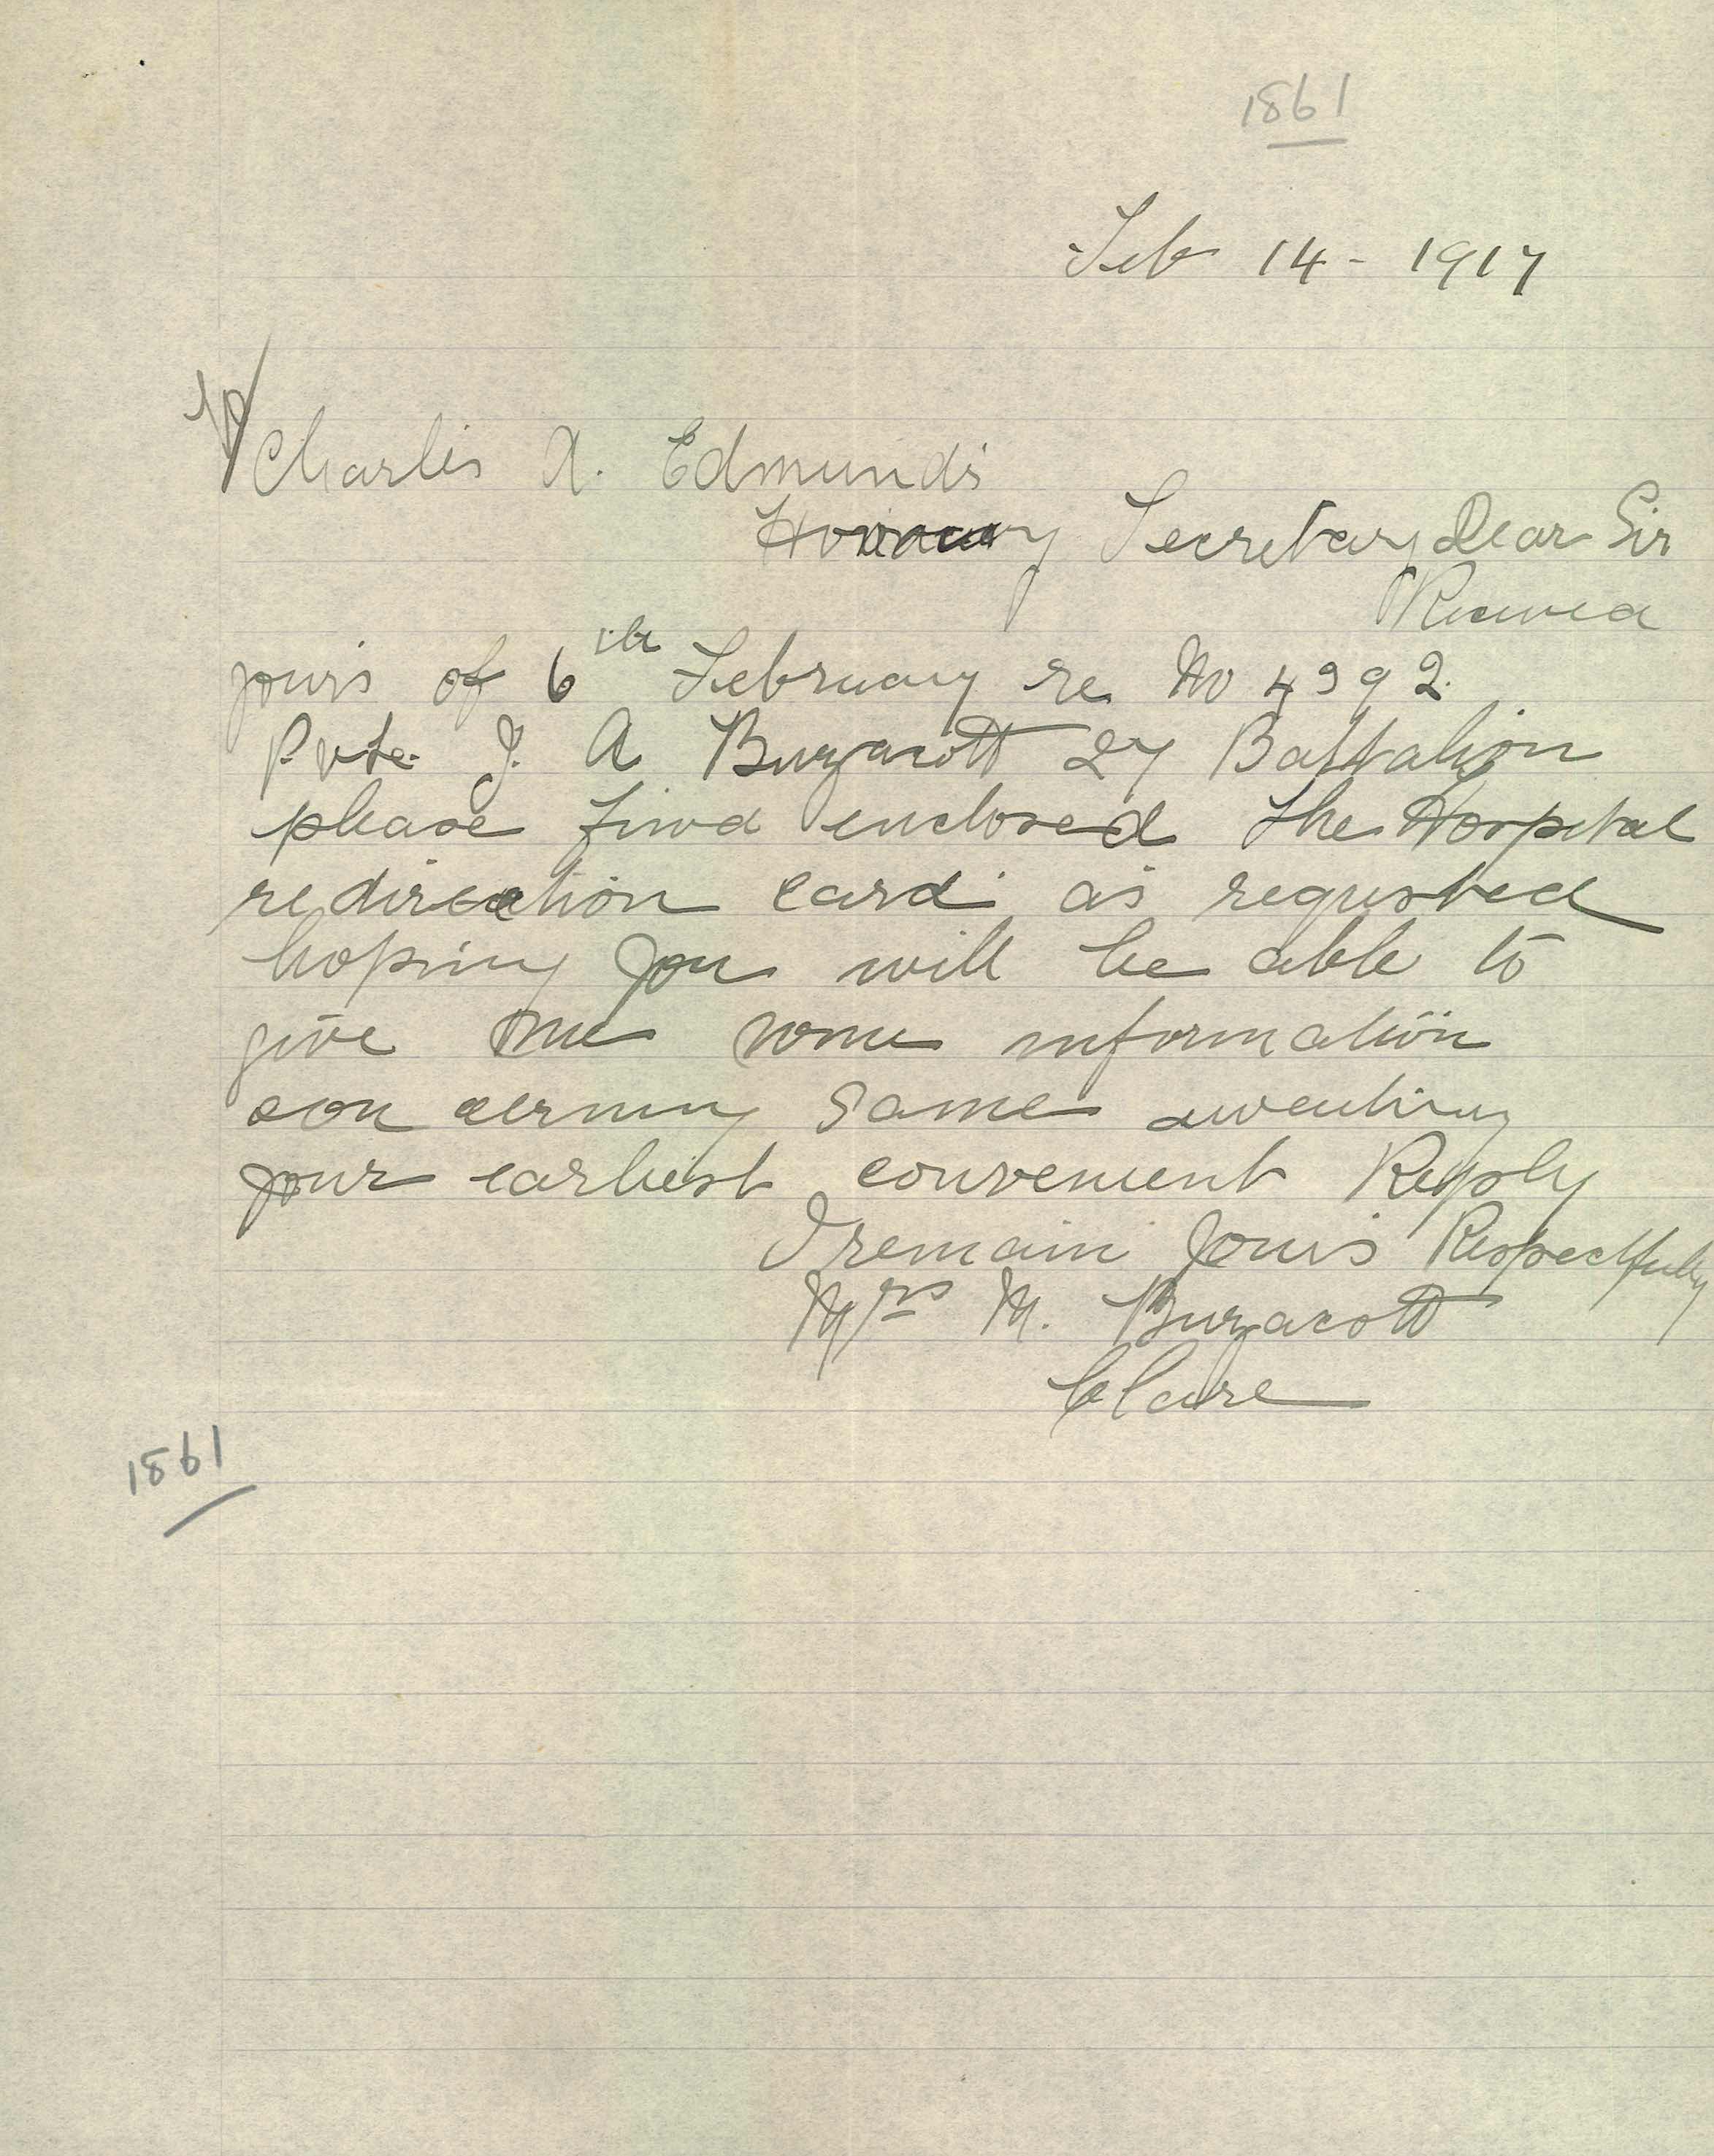 1861
Feb 14 - 1917
Charles A. Edmunds
Honorary Secretary Dear Sir
Received
yours of 6th February re No 4992
Pvte J. A Buzacott 27 Battalion
please find enclosed the Hospital
redirection card as requested
hoping you will be able to
give me some information
con cerning same awaiting
your earliest convenient Reply
I remain yours Respectfully
Mrs M. Buzacott
Clare
1861